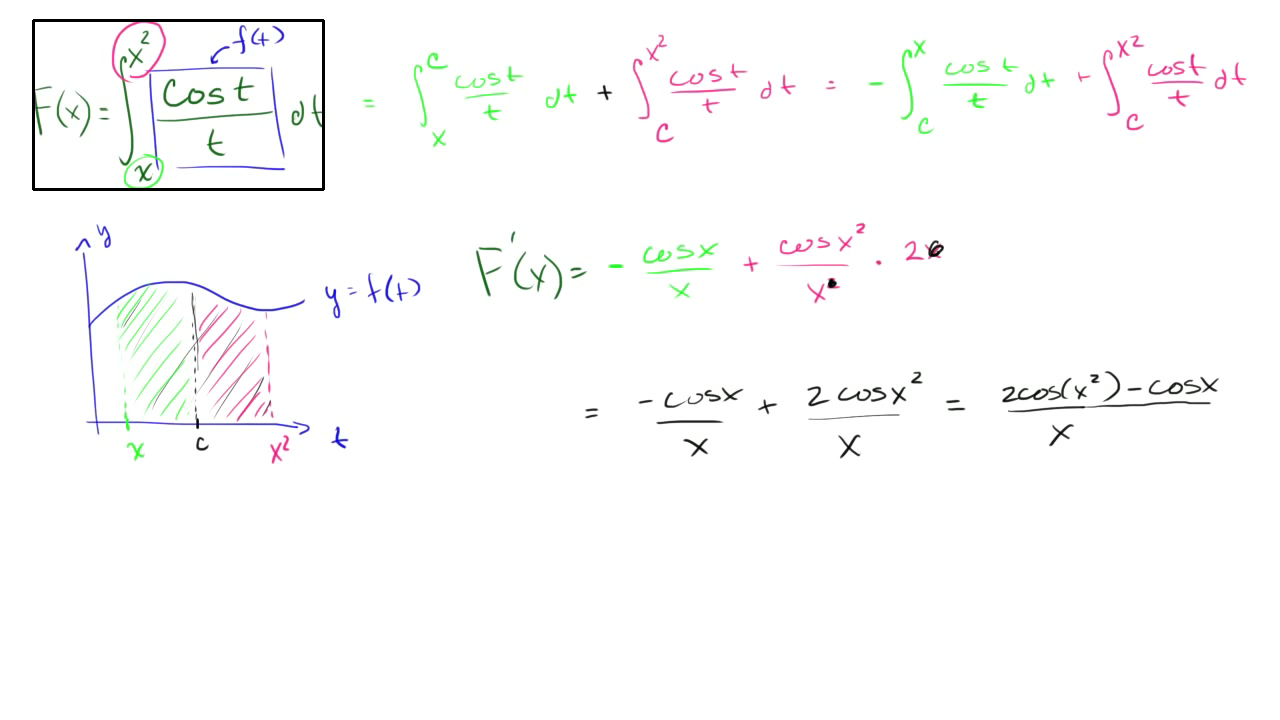 F(x) = ∫ₓ^(x²) cos t / t dt = ∫ₓ^c cos t / t dt + ∫_c^(x²) cos t / t dt = - ∫_c^x cos t / t dt + ∫_c^(x²) cos t / t dt
f(t)
F'(x) = - cos x / x + cos x² / x · 2
y
y = f(t)
= -cos x / x + 2 cos x² / x = 2cos(x²) - cos x / x
x c x² t